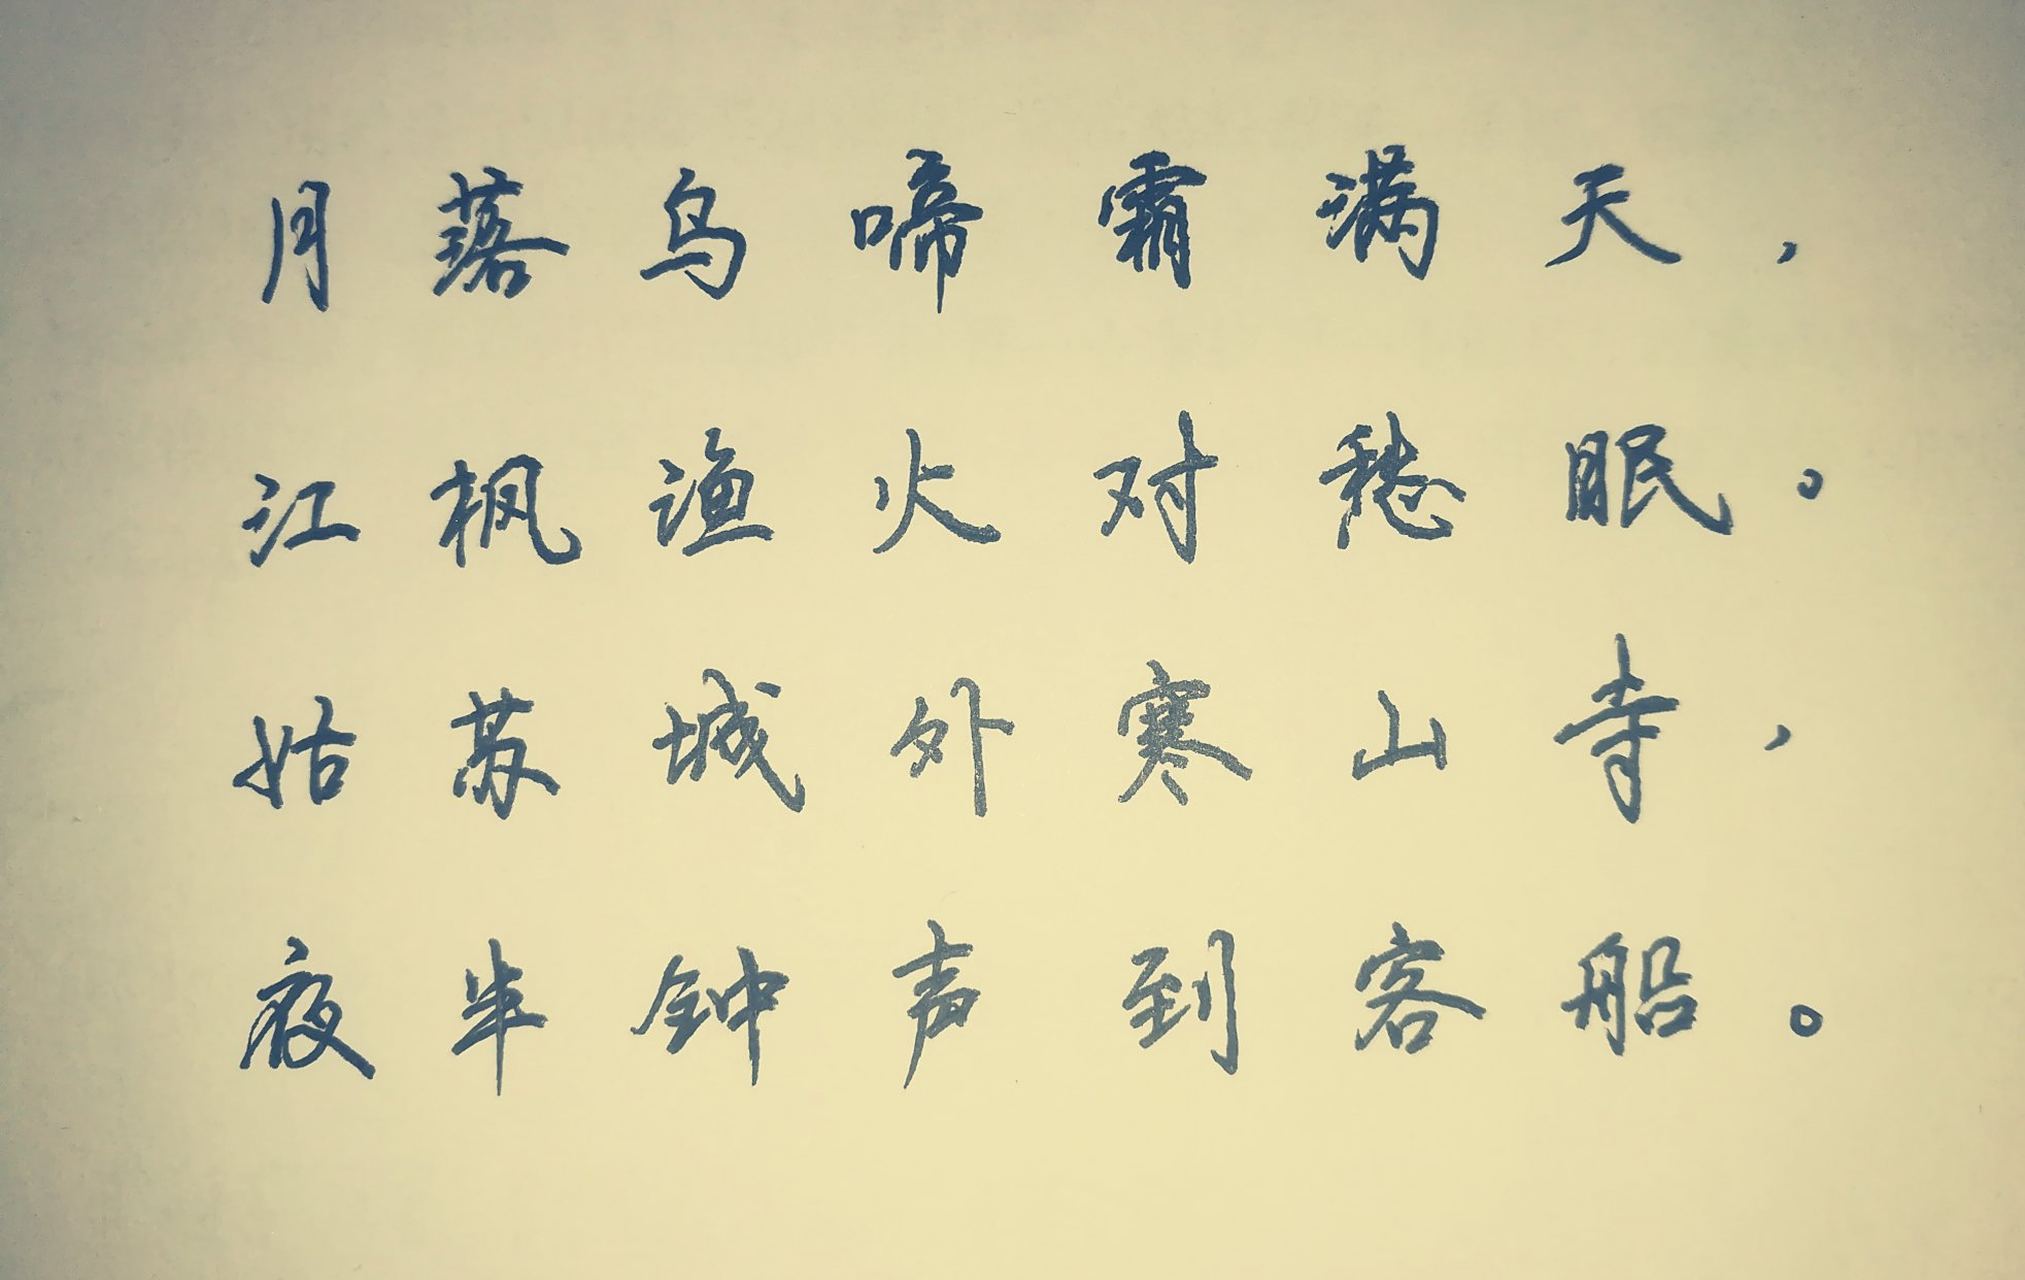 月落乌啼霜满天，
江枫渔火对愁眠。
姑苏城外寒山寺，
夜半钟声到客船。